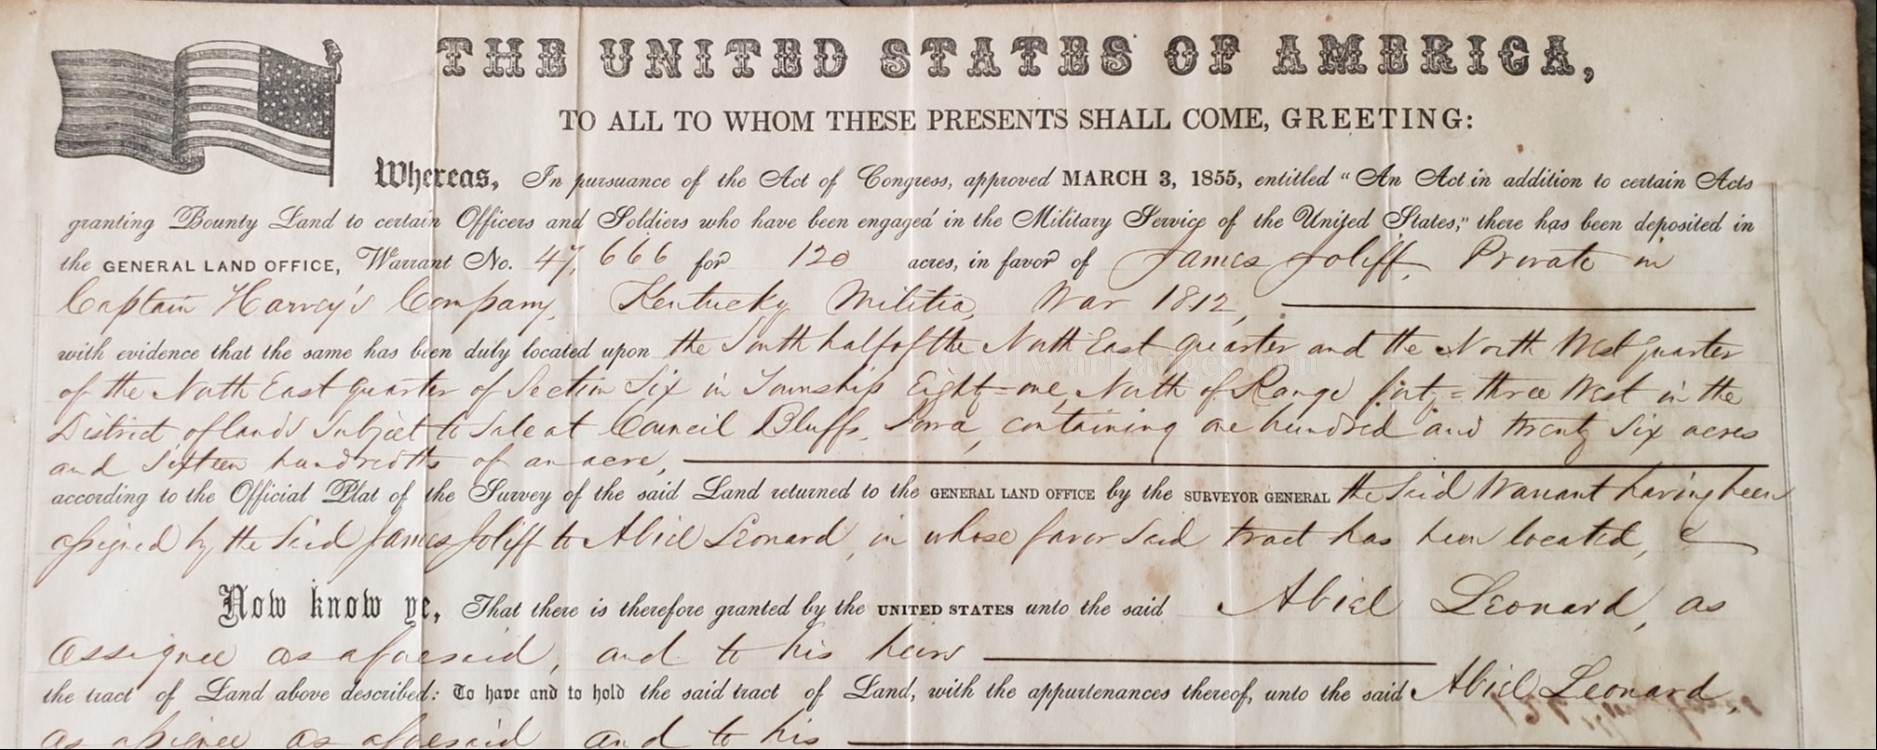 THE UNITED STATES OF AMERICA,
TO ALL TO WHOM THESE PRESENTS SHALL COME, GREETING:
Whereas, In pursuance of the Act of Congress, approved MARCH 3, 1855, entitled "An Act in addition to certain Acts
granting Bounty Land to certain Officers and Soldiers who have been engaged in the Military Service of the United States," there has been deposited in
the GENERAL LAND OFFICE, Warrant No. 47,666 for 120 acres, in favor of James Joliff, Private in
Captain Harvey's Company, Kentucky Militia, War 1812,
with evidence that the same has been duly located upon the South half of the North East quarter and the North West quarter
of the North East quarter of Section Six in Township Eighty=one, North of Range forty=three West in the
District of lands Subject to Sale at Council Bluffs, Iowa, containing one hundred and twenty Six acres
and Sixteen hundredths of an acre,
according to the Official Plat of the Survey of the said Land returned to the GENERAL LAND OFFICE by the SURVEYOR GENERAL the Said Warrant having been
assigned by the Said James Joliff to Abiel Leonard, in whose favor Said tract has been located,
Now know ye, That there is therefore granted by the UNITED STATES unto the said Abiel Leonard, as
assignee as aforesaid, and to his heirs
the tract of Land above described: To have and to hold the said tract of Land, with the appurtenances thereof, unto the said Abiel Leonard,
as assignee as aforesaid and to his